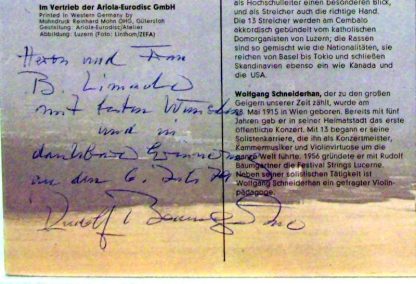 Im Vertrieb der Ariola-Eurodisc GmbH
Printed in Western Germany by
Mohndruck Reinhard Mohn OHG, Gütersloh
Gestaltung: Ariola-Eurodisc/Atelier
Abbildung: Luzern (Foto: Linthom/ZEFA)
Herrn und Frau
B.
mit besten Wünschen
und in
dankbarer Erinnerung
an den 6.
Rudolf Baumgartner
als Hochschullehrer einen besonderen Blick,
und als Streicher auch die richtige Hand.
Die 13 Streicher werden am Cembalo
akkordisch gebündelt vom katholischen
Domorganisten von Luzern; die Rassen
sind so gemischt wie die Nationalitäten, sie
reichen von Basel bis Tokio und schließen
Skandinavien ebenso ein wie Kanada und
die USA.
Wolfgang Schneiderhan, der zu den großen
Geigern unserer Zeit zählt, wurde am
28. Mai 1915 in Wien geboren. Bereits mit fünf
Jahren gab er in seiner Heimatstadt das erste
öffentliche Konzert. Mit 13 begann er seine
Solistenkarriere, die ihn als Konzertmeister,
Kammermusiker und Violinvirtuose um die
ganze Welt führte. 1956 gründete er mit Rudolf
Baumgartner die Festival Strings Lucerne.
Neben seiner solistischen Tätigkeit ist
Wolfgang Schneiderhan ein gefragter Violin-
pädagoge.